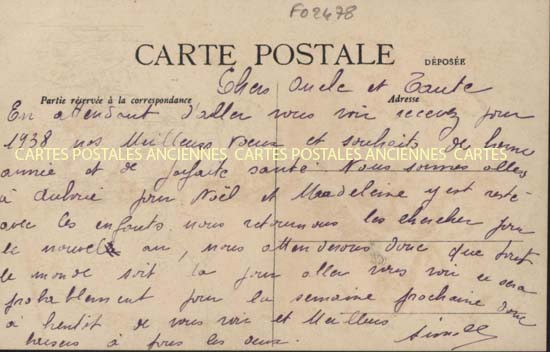 F02478
CARTE POSTALE
DÉPOSÉE
Partie réservée à la correspondance
Adresse
Chers Oncle et Tante
En attendant d'aller vous voir recevez pour
1938 nos Meilleurs vœux et souhaits de bonne
CARTES POSTALES ANCIENNES CARTES POSTALES ANCIENNES CARTES
année et de parfaite santé Nous sommes allés
à pour Noël et Madeleine y est restée
avec les enfants nous retournons les chercher pour
le nouvel an, nous attendrons donc que tout
le monde soit là pour aller vous voir ce sera
probablement pour la semaine prochaine donc
à bientôt de vous voir et Meilleurs
baisers à tous les deux.